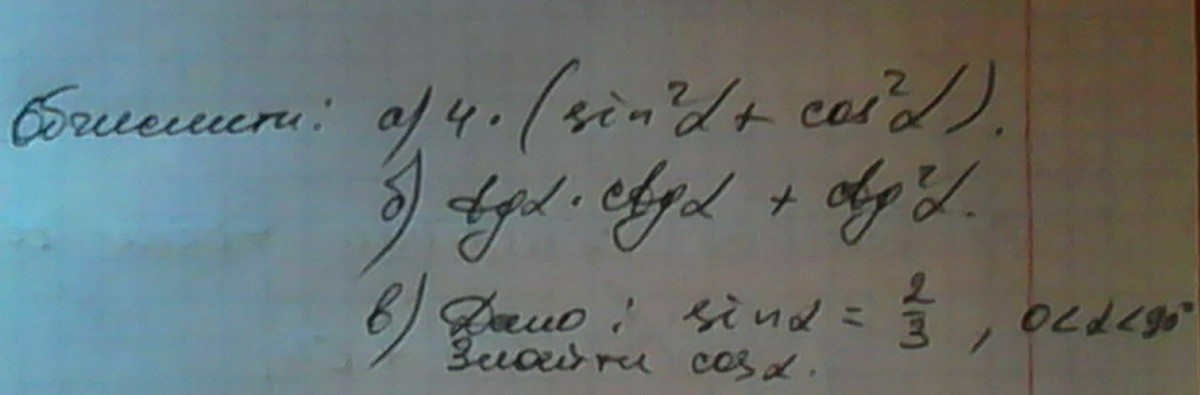 Обчислити: а) 4·(sin²α + cos²α).
б) tgα · ctgα + ctg²α.
в) Дано: sinα = 2/3, 0<α<90°
Знайти cosα.